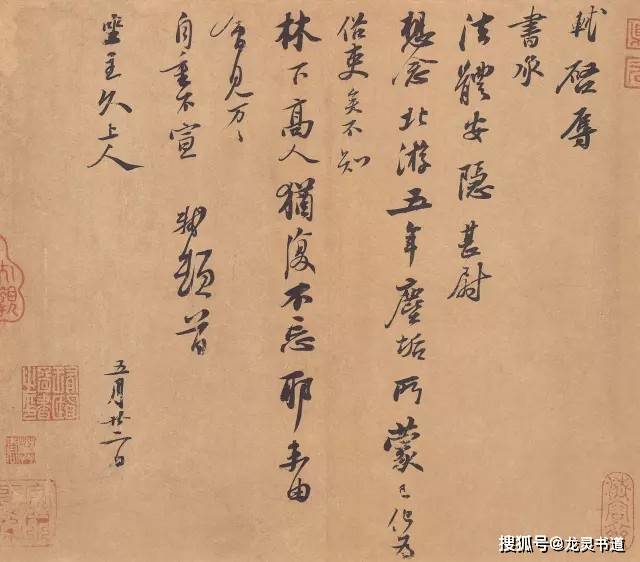 軾啓辱
書承
法體安隱甚尉
想念北游五年塵垢所蒙已化為
俗吏矣不知
林下高人猶復不忘耶未由
會見万〻
自重不宣 軾頓首
坐主久上人
五月廿二日
搜狐号@龙灵书道